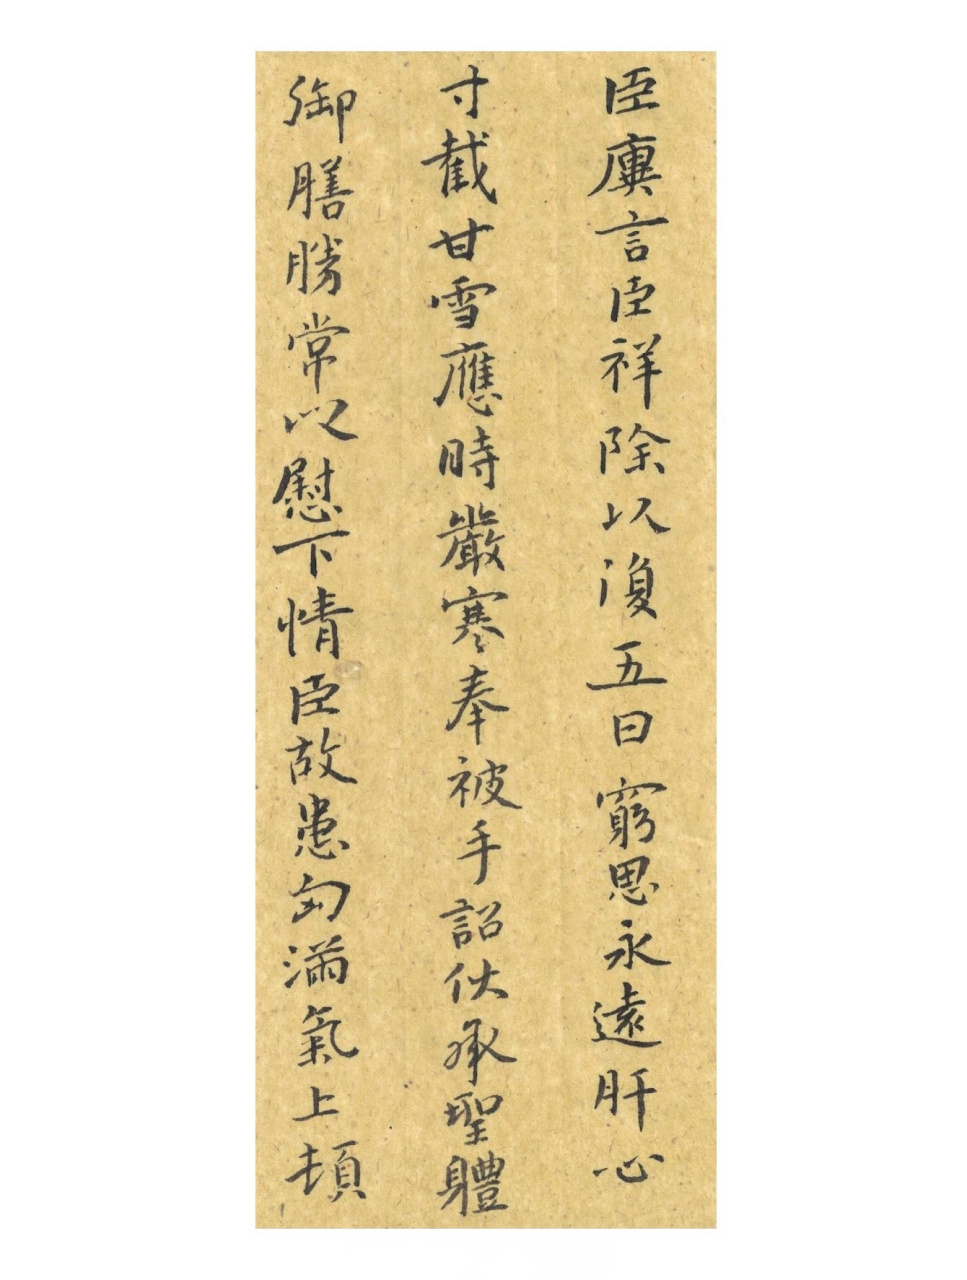 臣廙言臣祥除以復五日窮思永遠肝心
寸截甘雪應時嚴寒奉被手詔伏承聖體
御膳勝常以慰下情臣故患匈滿氣上頓